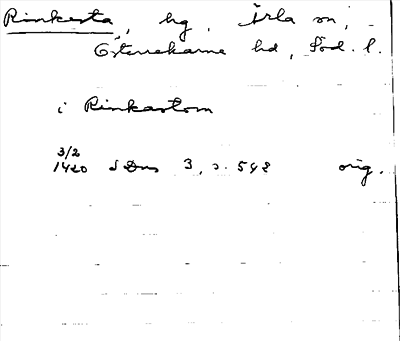 Rinkesta, hg, Ärla sn,
Österrekarne hd, Söd. l.
i Rinkastom
3/2
1420 SDns 3, s. 542 orig.